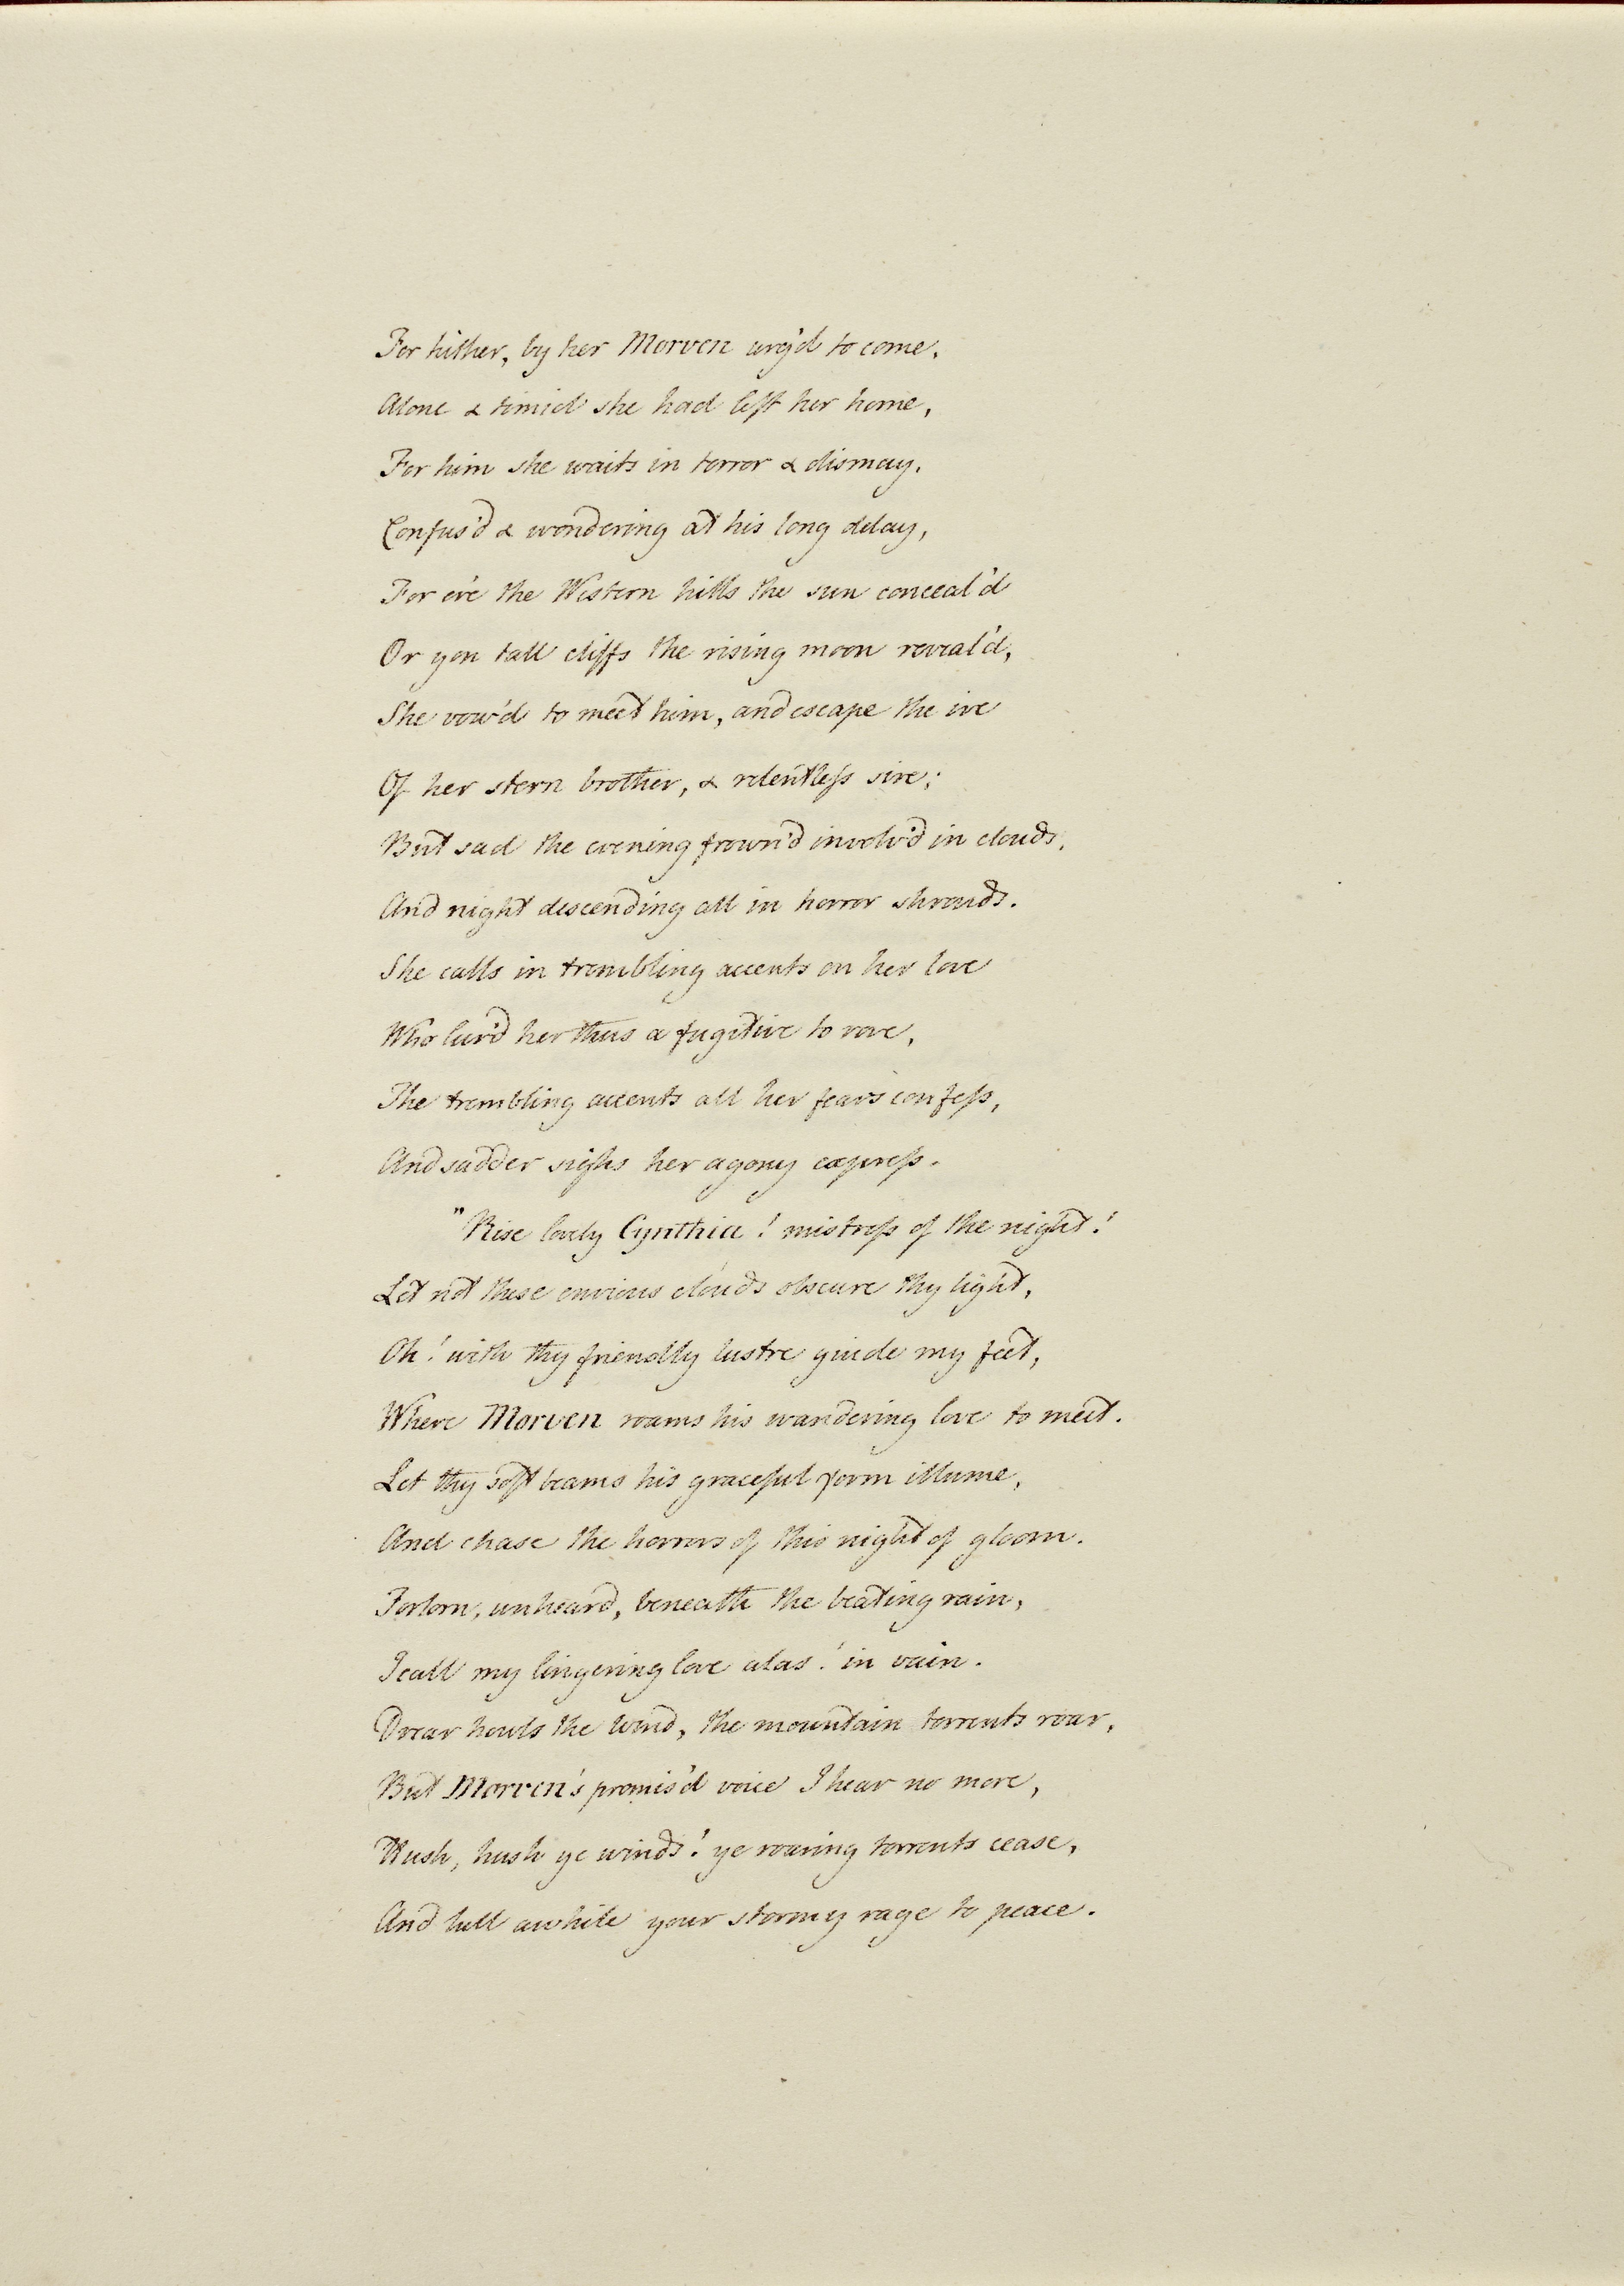 For hither, by her Morven urg'd to come,
Alone & timid she had left her home,
For him she waits in terror & dismay,
Confus'd & wondering at his long delay,
For e're the Western hills the sun conceal'd
Or yon tall cliffs the rising moon reveal'd,
She vow'd to meet him, and escape the ire
Of her stern brother, & relentless sire;
But sad the evening frown'd involv'd in clouds,
And night descending all in horror shrouds.
She calls in trembling accents on her love
Who lur'd her thus a fugitive to rove,
The trembling accents all her fears confess,
And sadder sighs her agony express.
"Rise lovely Cynthia! mistress of the night!
Let not these envious clouds obscure thy light,
Oh! with thy friendly lustre guide my feet,
Where Morven roams his wandering love to meet.
Let thy soft beams his graceful form illume,
And chase the horrors of this night of gloom.
Forlorn, unheard, beneath the beating rain,
I call my lingering love alas! in vain.
Drear howls the wind, the mountain torrents roar,
But Morven's promis'd voice I hear no more,
Hush, hush ye winds! ye roaring torrents cease,
And lull awhile your stormy rage to peace.